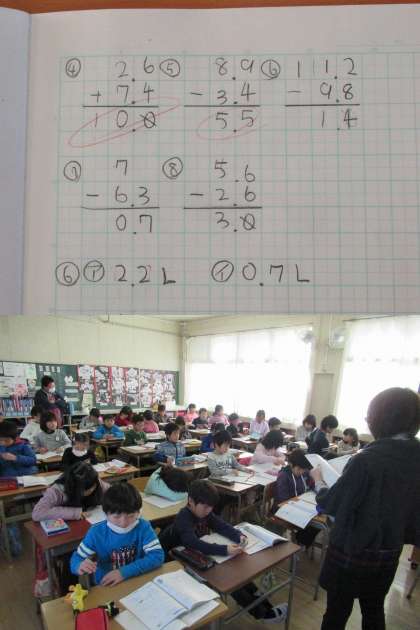 ④ 2.6 ⑤ 8.9 ⑥ 11.2
+ 7.4 - 3.4 - 9.8
10.0 5.5 1.4
⑦ 7 ⑧ 5.6
- 6.3 - 2.6
0.7 3.0
⑥ ㋐ 2.2L ㋑ 0.7L